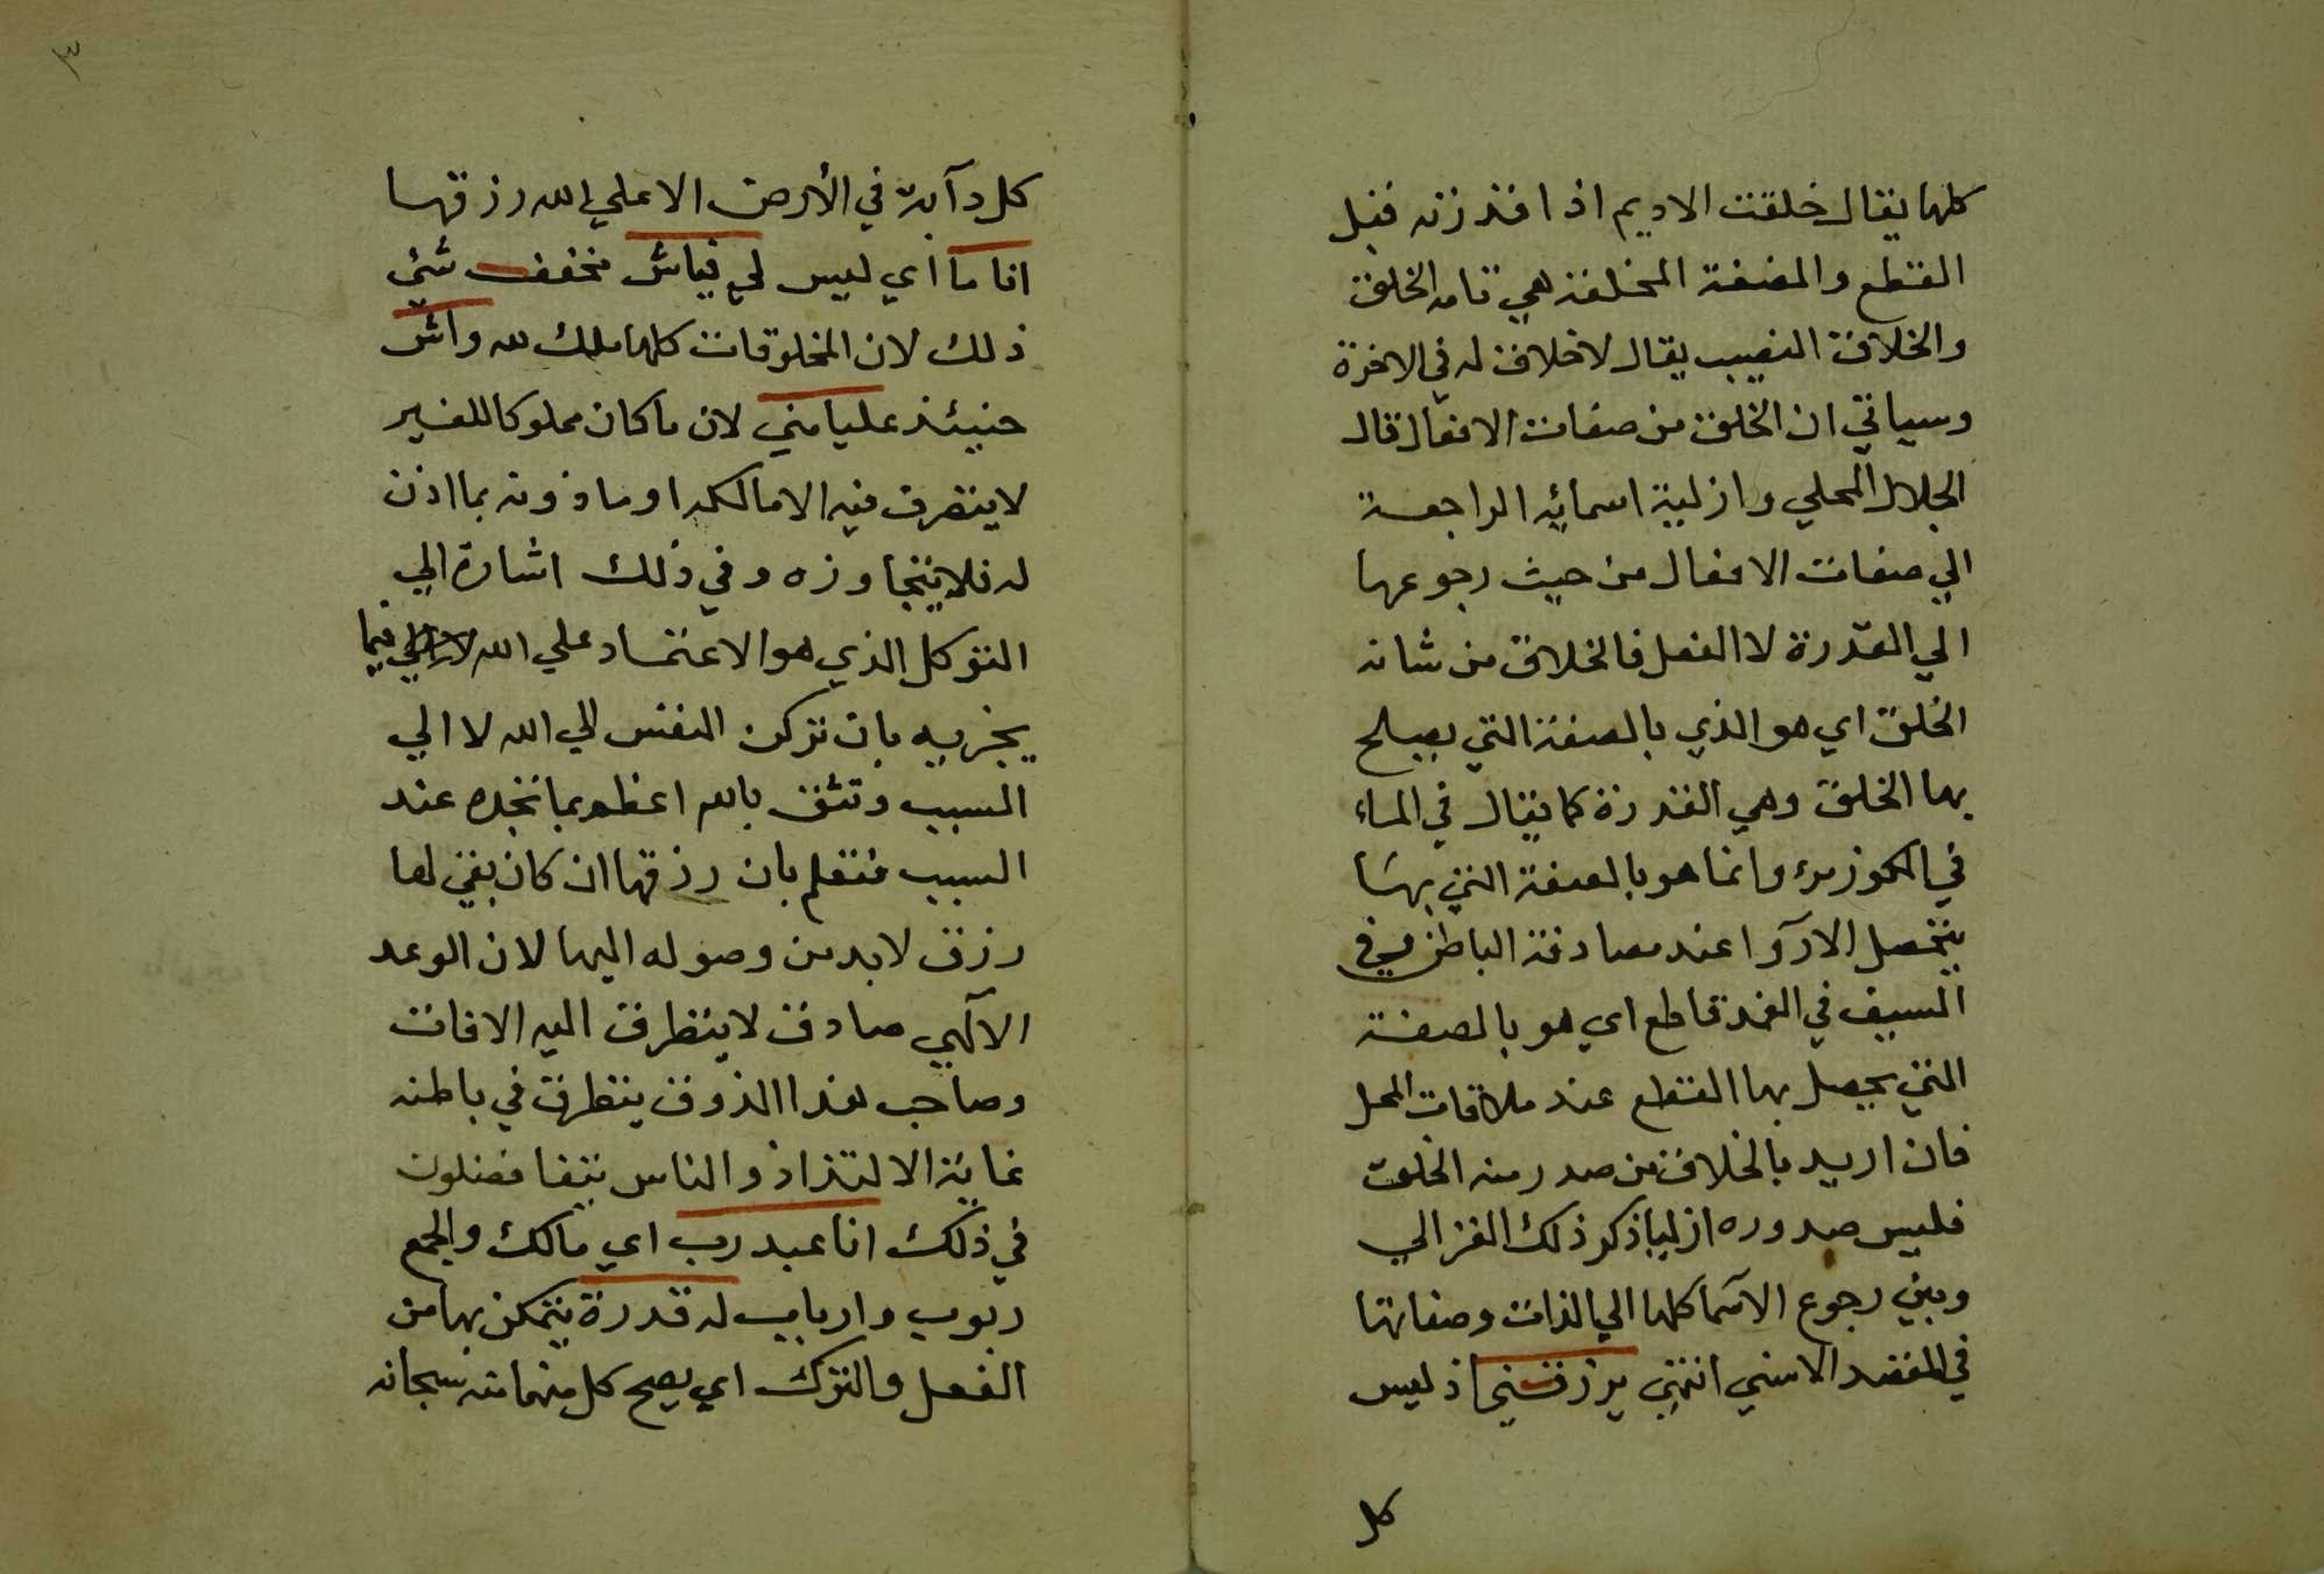 كلها يقال خلقت الاديم اذا قدرته قبل
القطع والمضغة المخلقة هي تامة الخلق
والخلاق النصيب يقال لا خلاق له في الاخرة
وسياتي ان الخلق من صفات الافعال قال
الجلال المحلي وازلية اسمائه الراجعة
الي صفات الافعال من حيث رجوعها
الي القدرة لا الفعل فالخلاق من شانه
الخلق اي هو الذي بالصفة التي يصلح
بها الخلق وهي القدرة كما يقال في الماء
في الكوز مرو وانما هو بالصفة التي بها
يتحصل الاروآ عند مصادفة الباطن وفي
السيف في الغمد قاطع اي هو بالصفة
التي يحصل بها القطع عند ملاقات المحل
فان اريد بالخلاق من صدر منه الخلق
فليس صدوره ازليا ذكر ذلك الغزالي
وبين رجوع الاسما كلها الي الذات وصفاتها
في المقصد الاسني انتهي يرزقني اذ ليس
كل
٣
كل دآبة في الأرض الا علي الله رزقها
انا ما اي ليس لي فياش مخفف شئ
ذلك لان المخلوقات كلها ملك لله واش
حنيئذ عليا مني لان ما كان مملوكا للغير
لا يتصرف فيه الا مالكه او ماذونه بما اذن
له فلا يتجاوزه وفي ذلك اشارة الي
التوكل الذي هو الاعتماد علي الله فيما
يجزيه بان تركن النفس الي الله لا الي
السبب وتثق بالله اعظم بما تجده عند
السبب فتعلم بان رزقها ان كان بقي لها
رزق لابد من وصوله اليها لان الوعد
الآلهي صادق لا يتطرق اليه الافات
وصاحب هذا الذوق يتطرق في باطنه
غاية الالتذاذ والناس يتفاضلون
في ذلك انا عبد رب اي مالك والجمع
ربوب وارباب له قدرة يتمكن بها من
الفعل والترك اي يصح كل منهما منه سبحانه